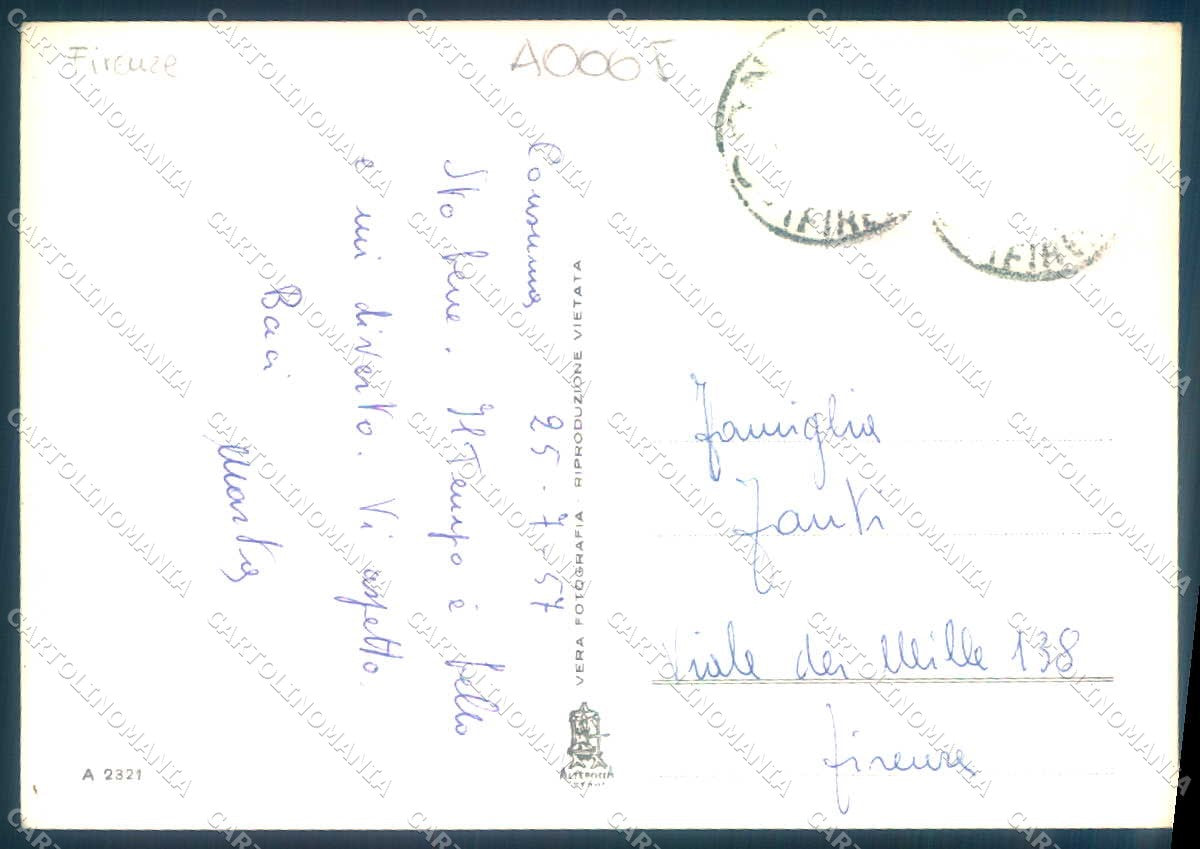 Firenze
A006T
Consuma 25-7-57
Sto bene. Il Tempo è bello
e mi diverto. Vi aspetto.
Baci
Marta
VERA FOTOGRAFIA - RIPRODUZIONE VIETATA
ALTEROCCA
TERNI
Famiglia
Fanti
Viale dei Mille 138
Firenze
A 2321
CARTOLINOMANIA